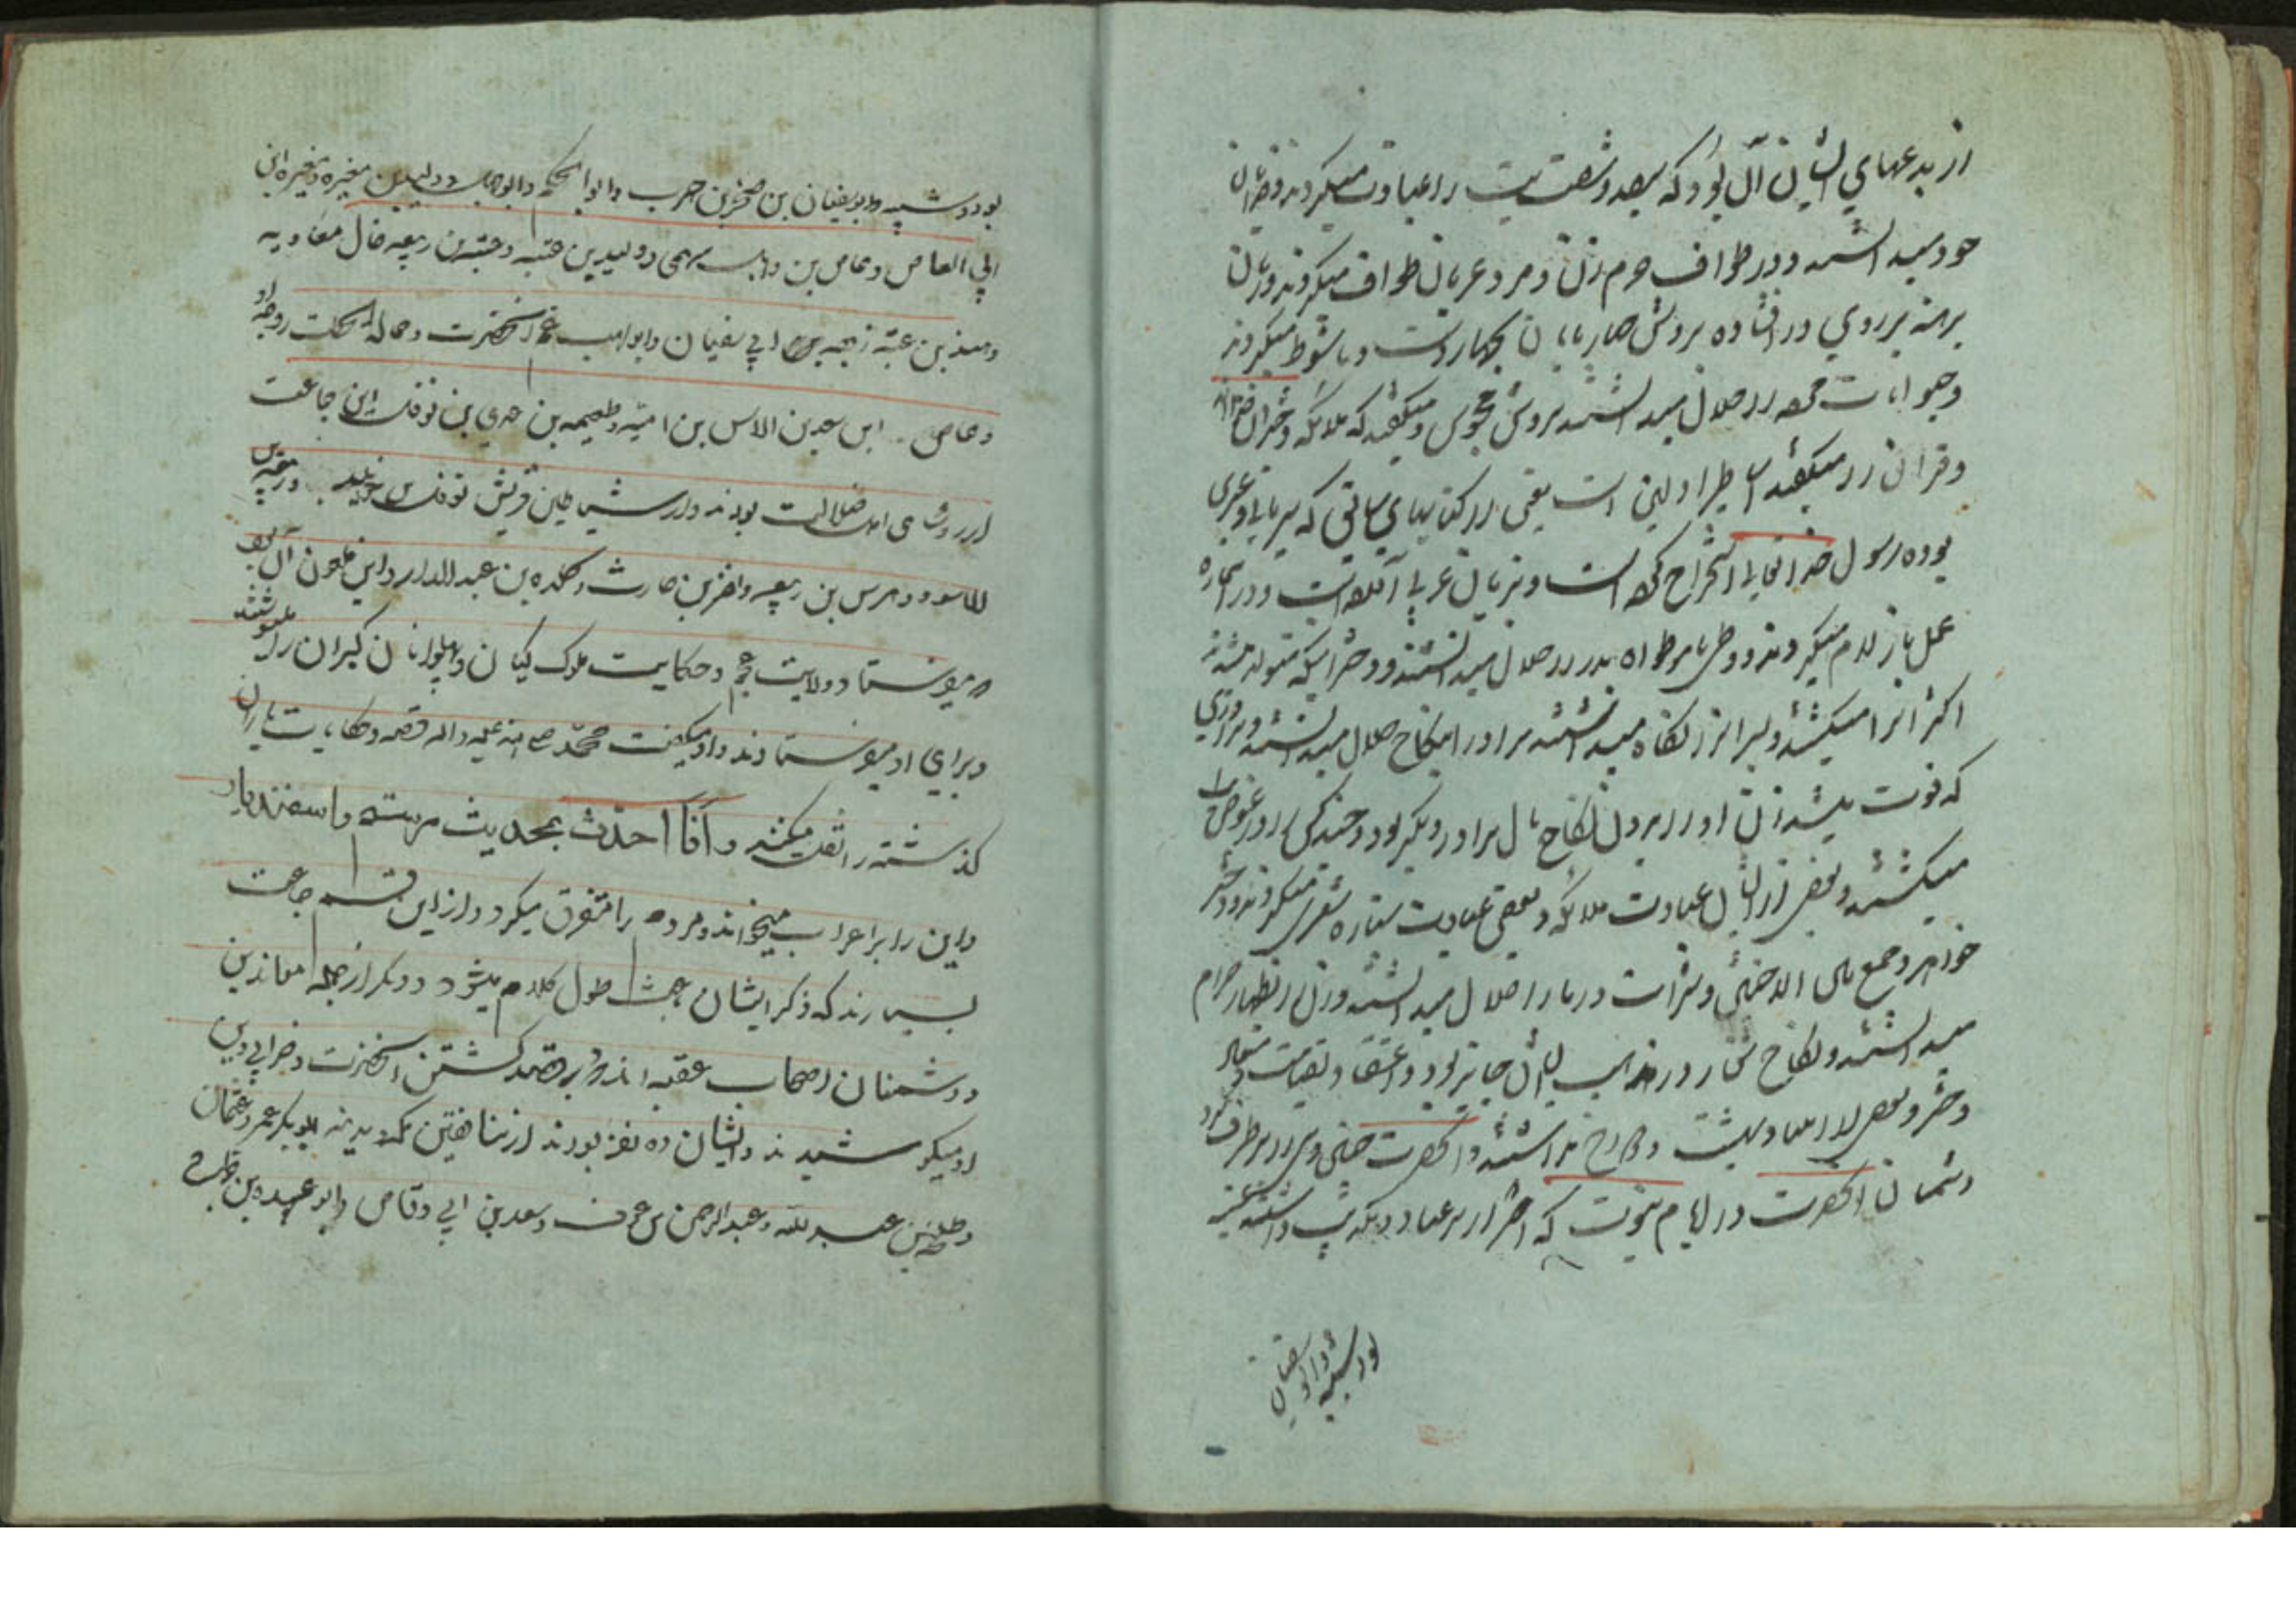 از بدعهای ایشان آن بود که سیصد و شصت بت را عبادت میکردند و خدایان
خود میدانستند و در طواف حرم زن و مرد عریان طواف میکردند و زنان
برهنه بر روی در افتاده بروش چهار پایان بچهار دست و پا شوط میکردند
و حیوانات مرده را حلال میدانستند بروش مجوس و میگفتند که ملائکه دختران خدااند
و قرآن را میگفتند اساطیر اولین است یعنی از کتابهای سابق که سریانی و عبری
بوده رسول خدا تعالی استخراج کرده است و بزبان عربی آورده است و در استخاره
عمل بازلام میکردند و وطی با موطوءه پدر را حلال میدانستند و دخترانیکه متولد میشدند
اکثر آنرا میکشتند و پسر انرا نگاه میداشتند مرا در را نکاح حلال میدانستند و مردی
که فوت میشد زن او را بردن نکاح مال برادر دیگر بود و چند کس را در عوض
میکشتند و بعضی از ایشان عبادت ملائکه و بعضی عبادت ستاره شعری میکردند و دختر
خواهر و جمع بین الاختین و شراب و ربا را حلال میدانستند و زن را بظهار حرام
میدانستند و نکاح شغار در مذهب ایشان جایز بود و اعتقاد بقیامت و معاد
و حشر و بعضی را بمعاد و بهشت و دوزخ نداشتند و آنحضرت چنین دین را بر طرف کرد
دشمنان آنحضرت در ایام نبوت که اضرار بر عناد و یکدیگر داشتند عتبه
بود و شیبه و ابو سفیان
بود و شیبه و ابو سفیان بن صخر بن حرب و ابو الحکم و ابو جهل و ولید بن مغیره و مغیره ابن
ابی العاص و عاص بن وایل سهمی و ولید بن عتبه و عتبه بن ربیعه خال معاویه
و هند بن عتبه زوجه ابی سفیان و ابو لهب عم آنحضرت و حمالة الحطب زوجه او
و عاص ابن سعد بن العاص بن امیه و طعیمه بن عدی بن نوفل این جماعت
از روسای اهل ضلالت بودند و از شیاطین قریش نوفل بن خویلد و زمعه بن
الاسود و حرس بن ربیعه و نضر بن حارث و کلده بن عبد الدار و این ملعون آن بود
که میفرستاد و ولایت عجم و حکایت ملوک کیان و پهلوانان گبران را مینوشتند
و برای او میفرستادند و او میگفت محمّد صلی الله علیه و اله قصه و حکایات یاران
گذشته را نقل میکند و اَنا احدّث بحدیث رستم و اسفندیار
و این را بر اعراب میخواند و مردم را متفرق میکرد و از این قسم جماعت
بسیارند که ذکر ایشان باعث طول کلام میشود و دیگر از جمله معاندین
و دشمنان اصحاب عقبه اند که بر قصد کشتن آنحضرت و خرابی دین
او میکوشیدند و ایشان ده نفر بودند از منافقین مکه و مدینه ابو بکر و عمر و عثمان
و طلحه بن عبد الله و عبد الرحمن بن عوف و سعد بن ابی وقاص و ابو عبیده بن جراح